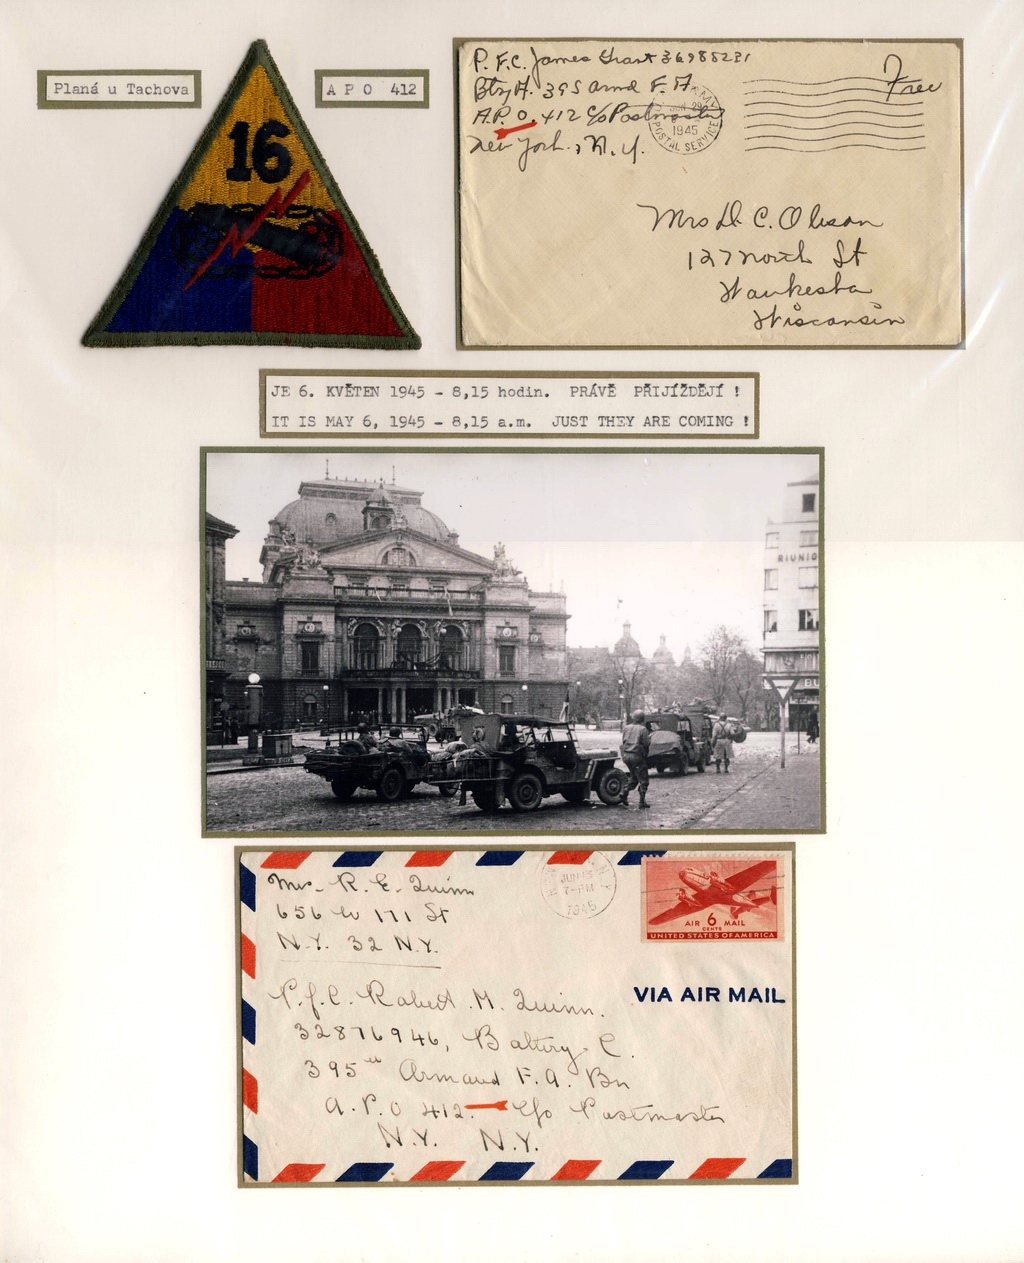 Planá u Tachova
A P O 412
16
P.F.C. James Grant 36988231
Btry A. 395 Armd F. A
A.P.O. 412 C/o Postmaster
New York, N.Y.
Free
ARMY
JUN 29
1945
POSTAL SERVICE
Mrs D. C. Oleson
127 North St
Waukesha
Wisconsin
JE 6. KVĚTEN 1945 - 8,15 hodin. PRÁVĚ PŘIJÍŽDĚJÍ !
IT IS MAY 6, 1945 - 8,15 a.m. JUST THEY ARE COMING !
RIUNIO
BU
Mrs. R. E. Quinn
656 W 171 St
N.Y. 32 N.Y.
JUN 13
7-PM
1945
AIR 6 MAIL
CENTS
UNITED STATES OF AMERICA
VIA AIR MAIL
P.f.C. Robert M. Quinn.
32876946, Battery C.
395th Armored F.A. Bn
A.P.O 412. C/o Postmaster
N.Y. N.Y.